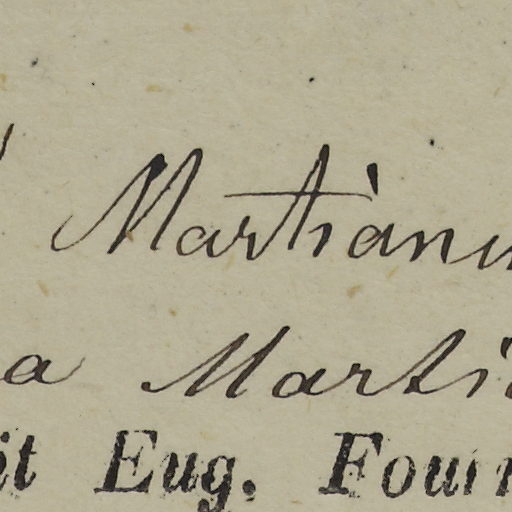 Martianu
a Marti
it Eug. Fourn